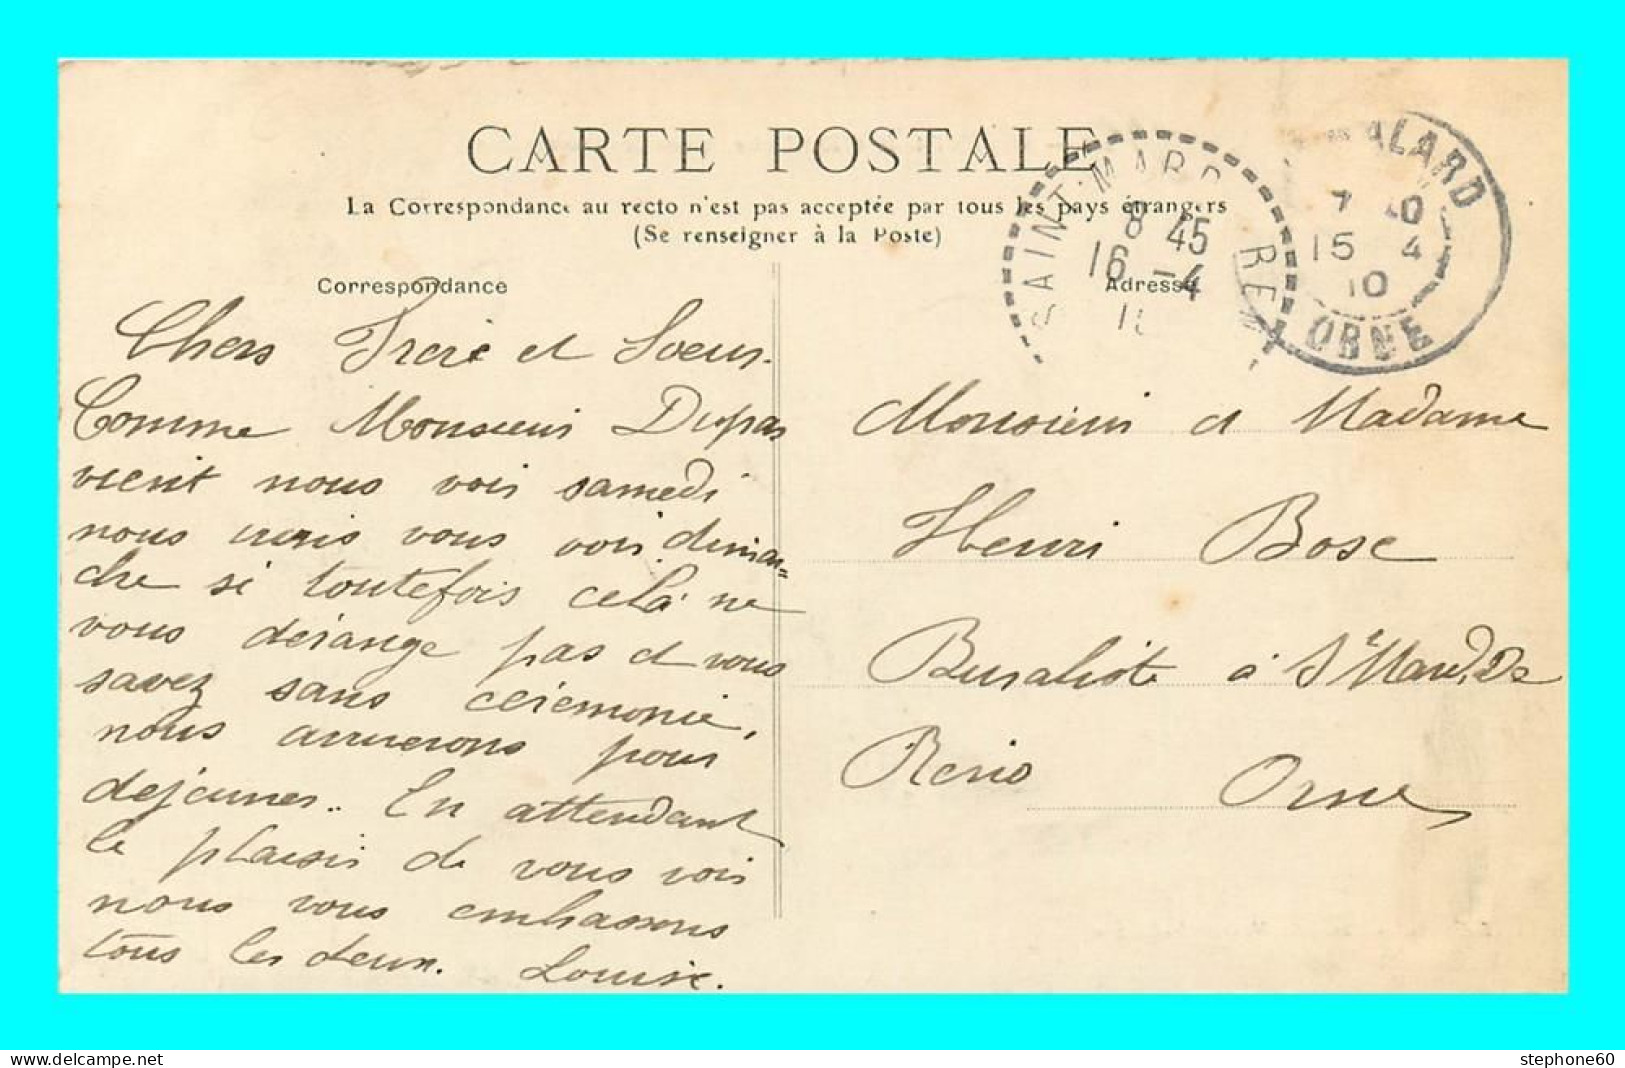 CARTE POSTALE
La Correspondance au recto n'est pas acceptée par tous les pays étrangers
(Se renseigner à la Poste)
Correspondance
Chers Frere et Soeur.
Comme Monsieur Dupas
vient nous voir samedi
nous irons vous voir diman=
che si toutefois cela ne
vous dérange pas et vous
savez sans cérémonie,
nous arriverons pour
dejeuner.. En attendant
le plaisir de vous voir
nous vous embrassons
tous les deux. Louise.
Adresse
Monsieur et Madame
Henri Bosc
Buraliste à St Mard, de
Reno Orne
SAINT-MARD RENO
8 45
16 -4
ALARD
7 40
15 4
10
ORNE
www.delcampe.net
stephone60